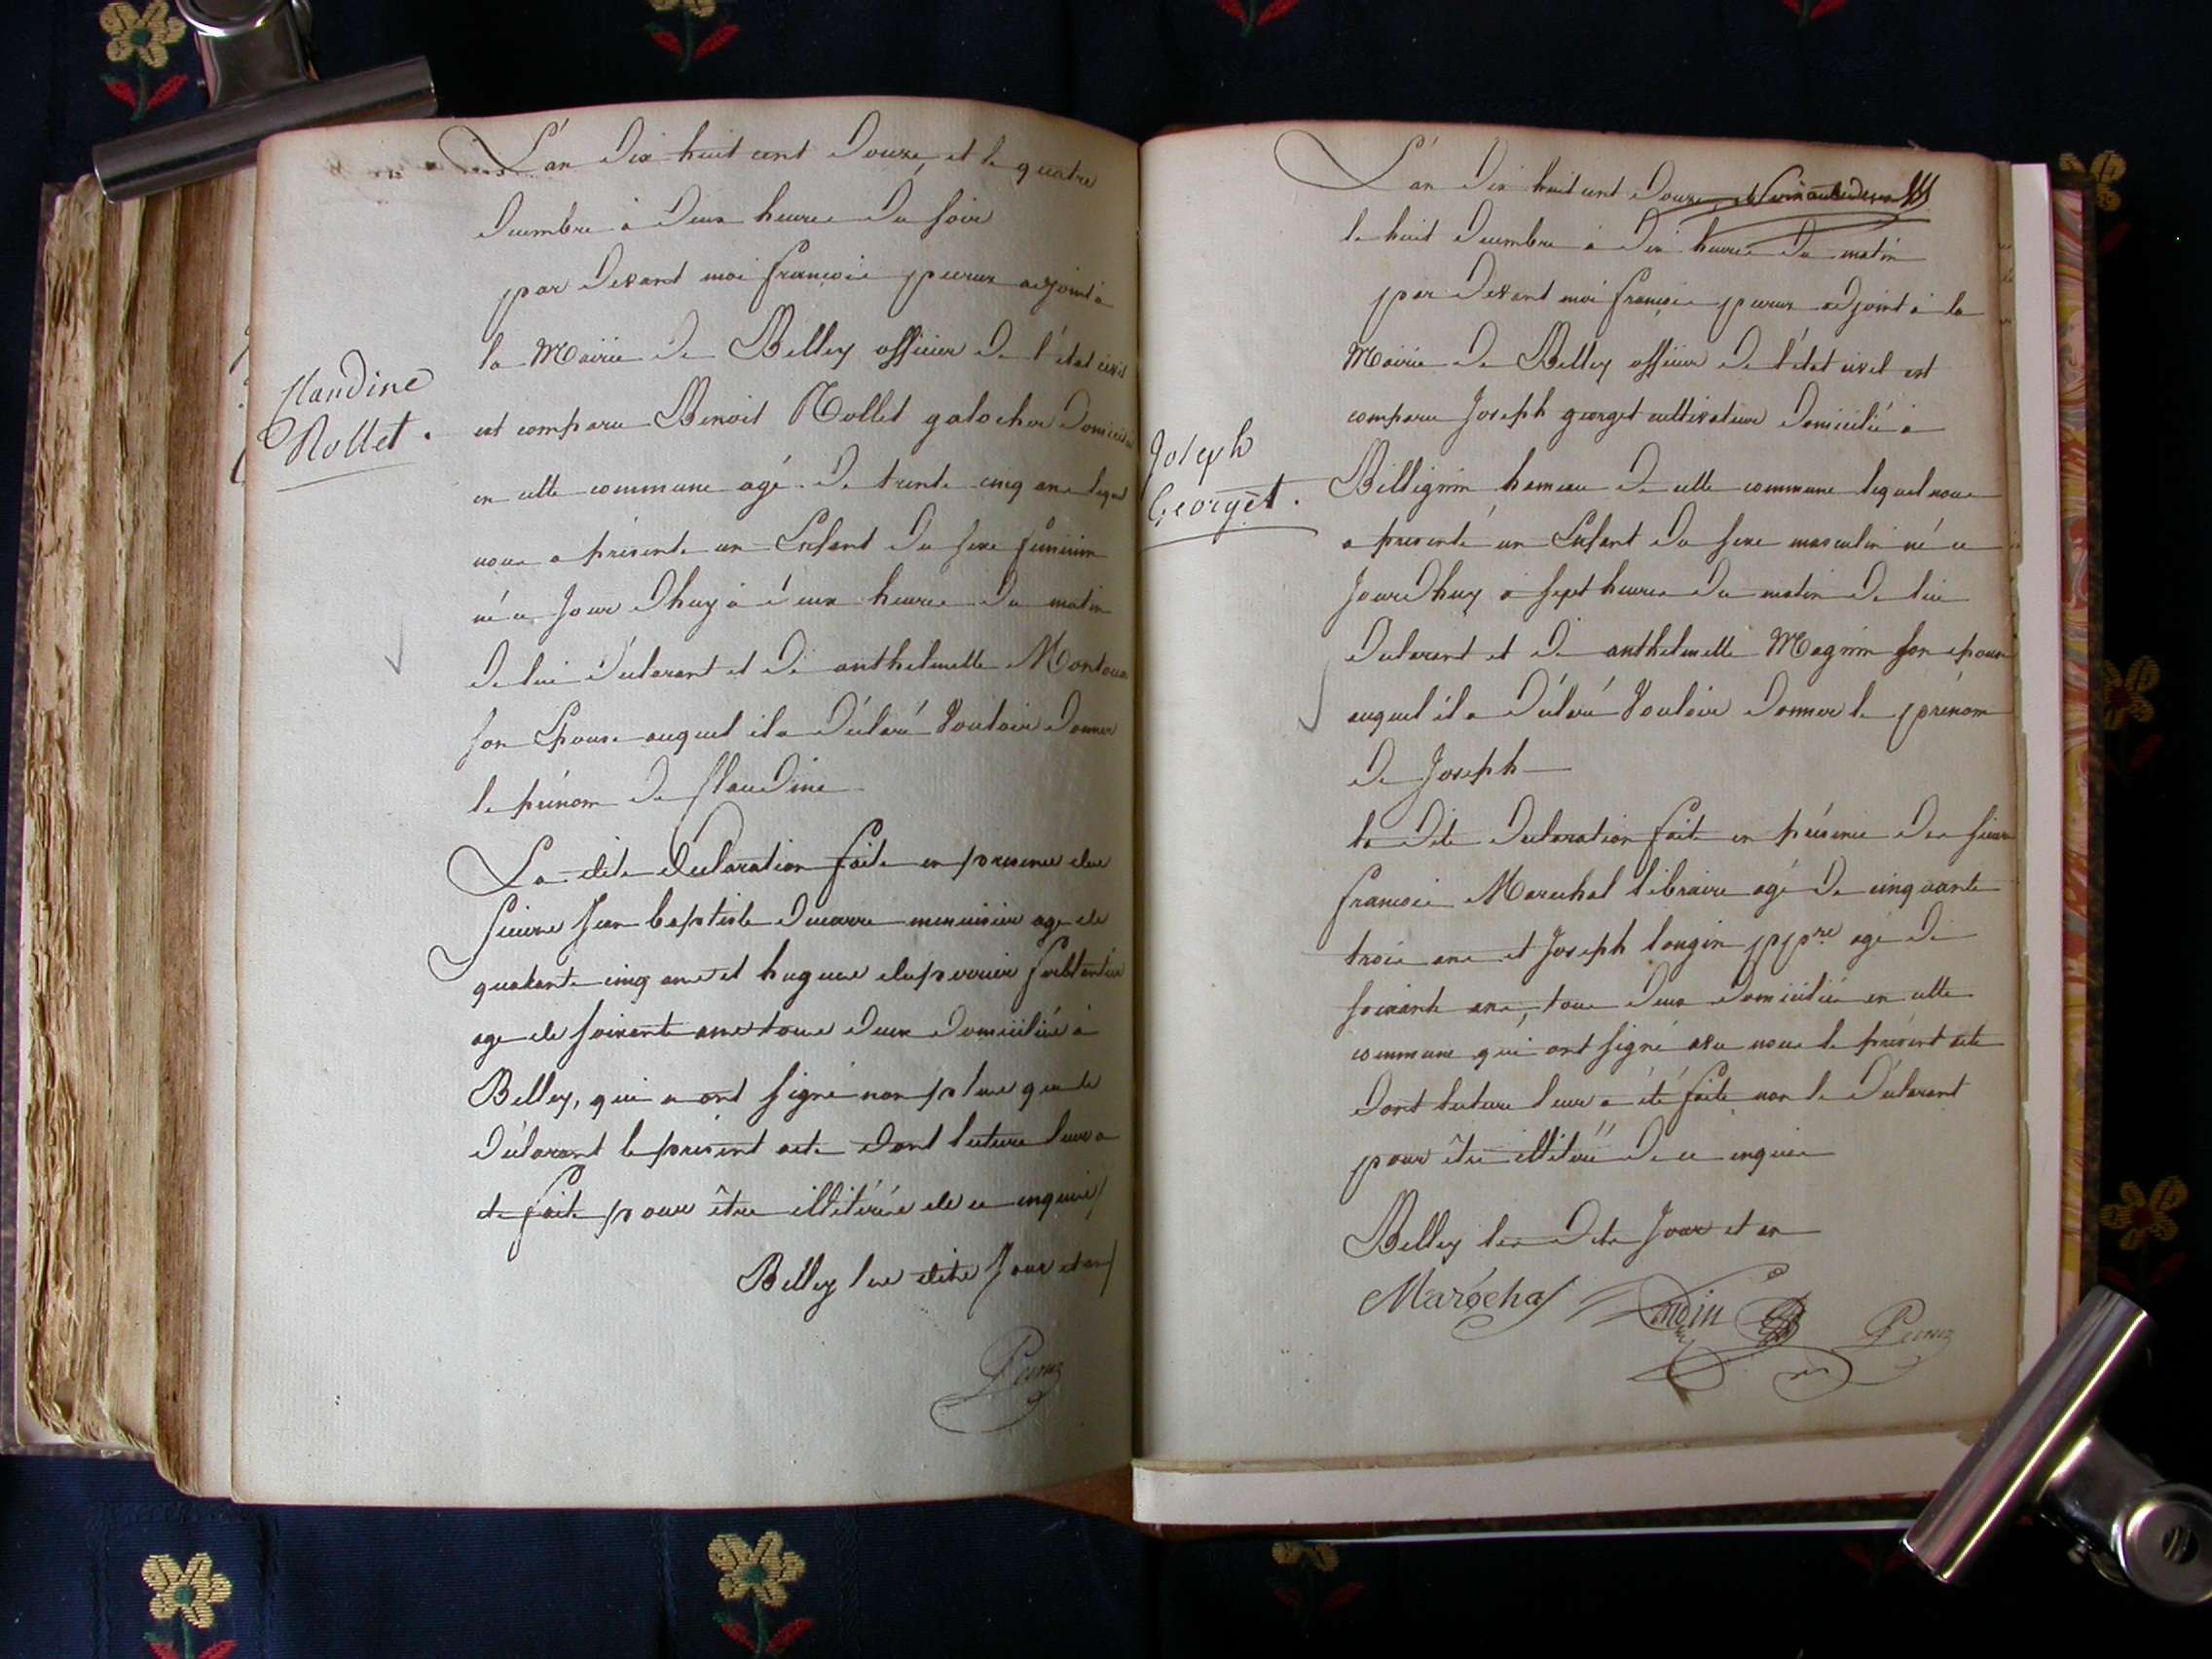 L'an dix huit cent douze, et le quatre
decembre à deux heures du soir
par devant moi françois peruz adjoint à
la Mairie de Belley officier de l'état civil
Claudine
Rollet.
est comparu Benoit Rollet galocher domicilié
en cette commune agé de trente cinq ans lequel
nous a présenté un Enfant du sexe feminin
né ce jour dhuy à deux heures du matin
de lui déclarant et de anthelmette
son Epouse auquel il a déclaré Vouloir donner
le prénom de Claudine
La dite declaration faite en presence des
sieurs Jean baptiste ducarre menuisier age de
quarante cinq ans et hugues duperrier
age de soixante ans tous deux domiciliés à
Belley, qui n ont signé non plus que le
déclarant le présent acte dont lecture leur a
ete faite pour être illitérés de ce enquis
Belley les dits jour et an
Peruz
L'an dix huit cent douze,
le huit decembre à dix heures du matin
par devant moi françois peruz adjoint à la
Mairie de Belley officier de l'état civil est
comparu Joseph georget cultivateur domicilié à
Joseph
Georget.
Billignin hameau de cette commune lequel nous
a presenté un Enfant du sexe masculin né ce
jourdhuy à sept heures du matin de lui
declarant et de anthelmette Magnin son epouse
auquel il a déclaré Vouloir donner le prénom
de Joseph
la dite declaration faite en présence des sieurs
francois Marechal libraire agé de cinquante
trois ans et Joseph pp.re agé de
soixante ans, tous deux domiciliés en cette
commune qui ont signé avec nous le présent acte
dont lecture leur a été faite non le déclarant
pour être illitéré de ce enquis
Belley les dits jour et an
Maréchal Peruz